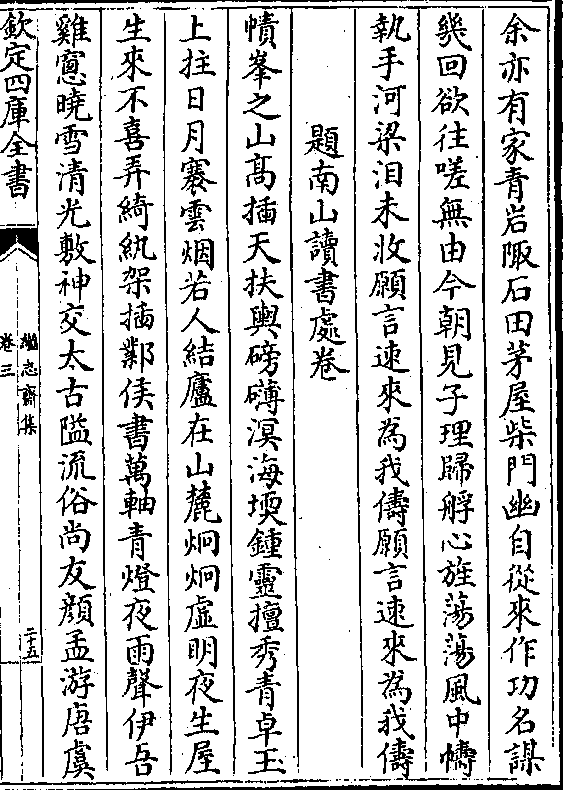 余亦有家青岩陬石田茅屋柴門幽自從來作功名謀
幾回欲往嗟無由今朝見子理歸艀心旌蕩蕩風中幬
執手河梁泪未收願言速來為我儔願言速來為我儔
題南山讀書處卷
幘峯之山髙插天扶輿磅礴溟海堧鍾靈擅秀青卓玉
上拄日月褰雲烟若人結廬在山麓炯炯虛明夜生屋
生來不喜弄綺紈架插鄴侯書萬軸青燈夜雨聲伊吾
雞窻曉雪清光敷神交太古隘流俗尚友顔孟游唐虞
欽定四庫全書
繼志齋集
卷三
二十五